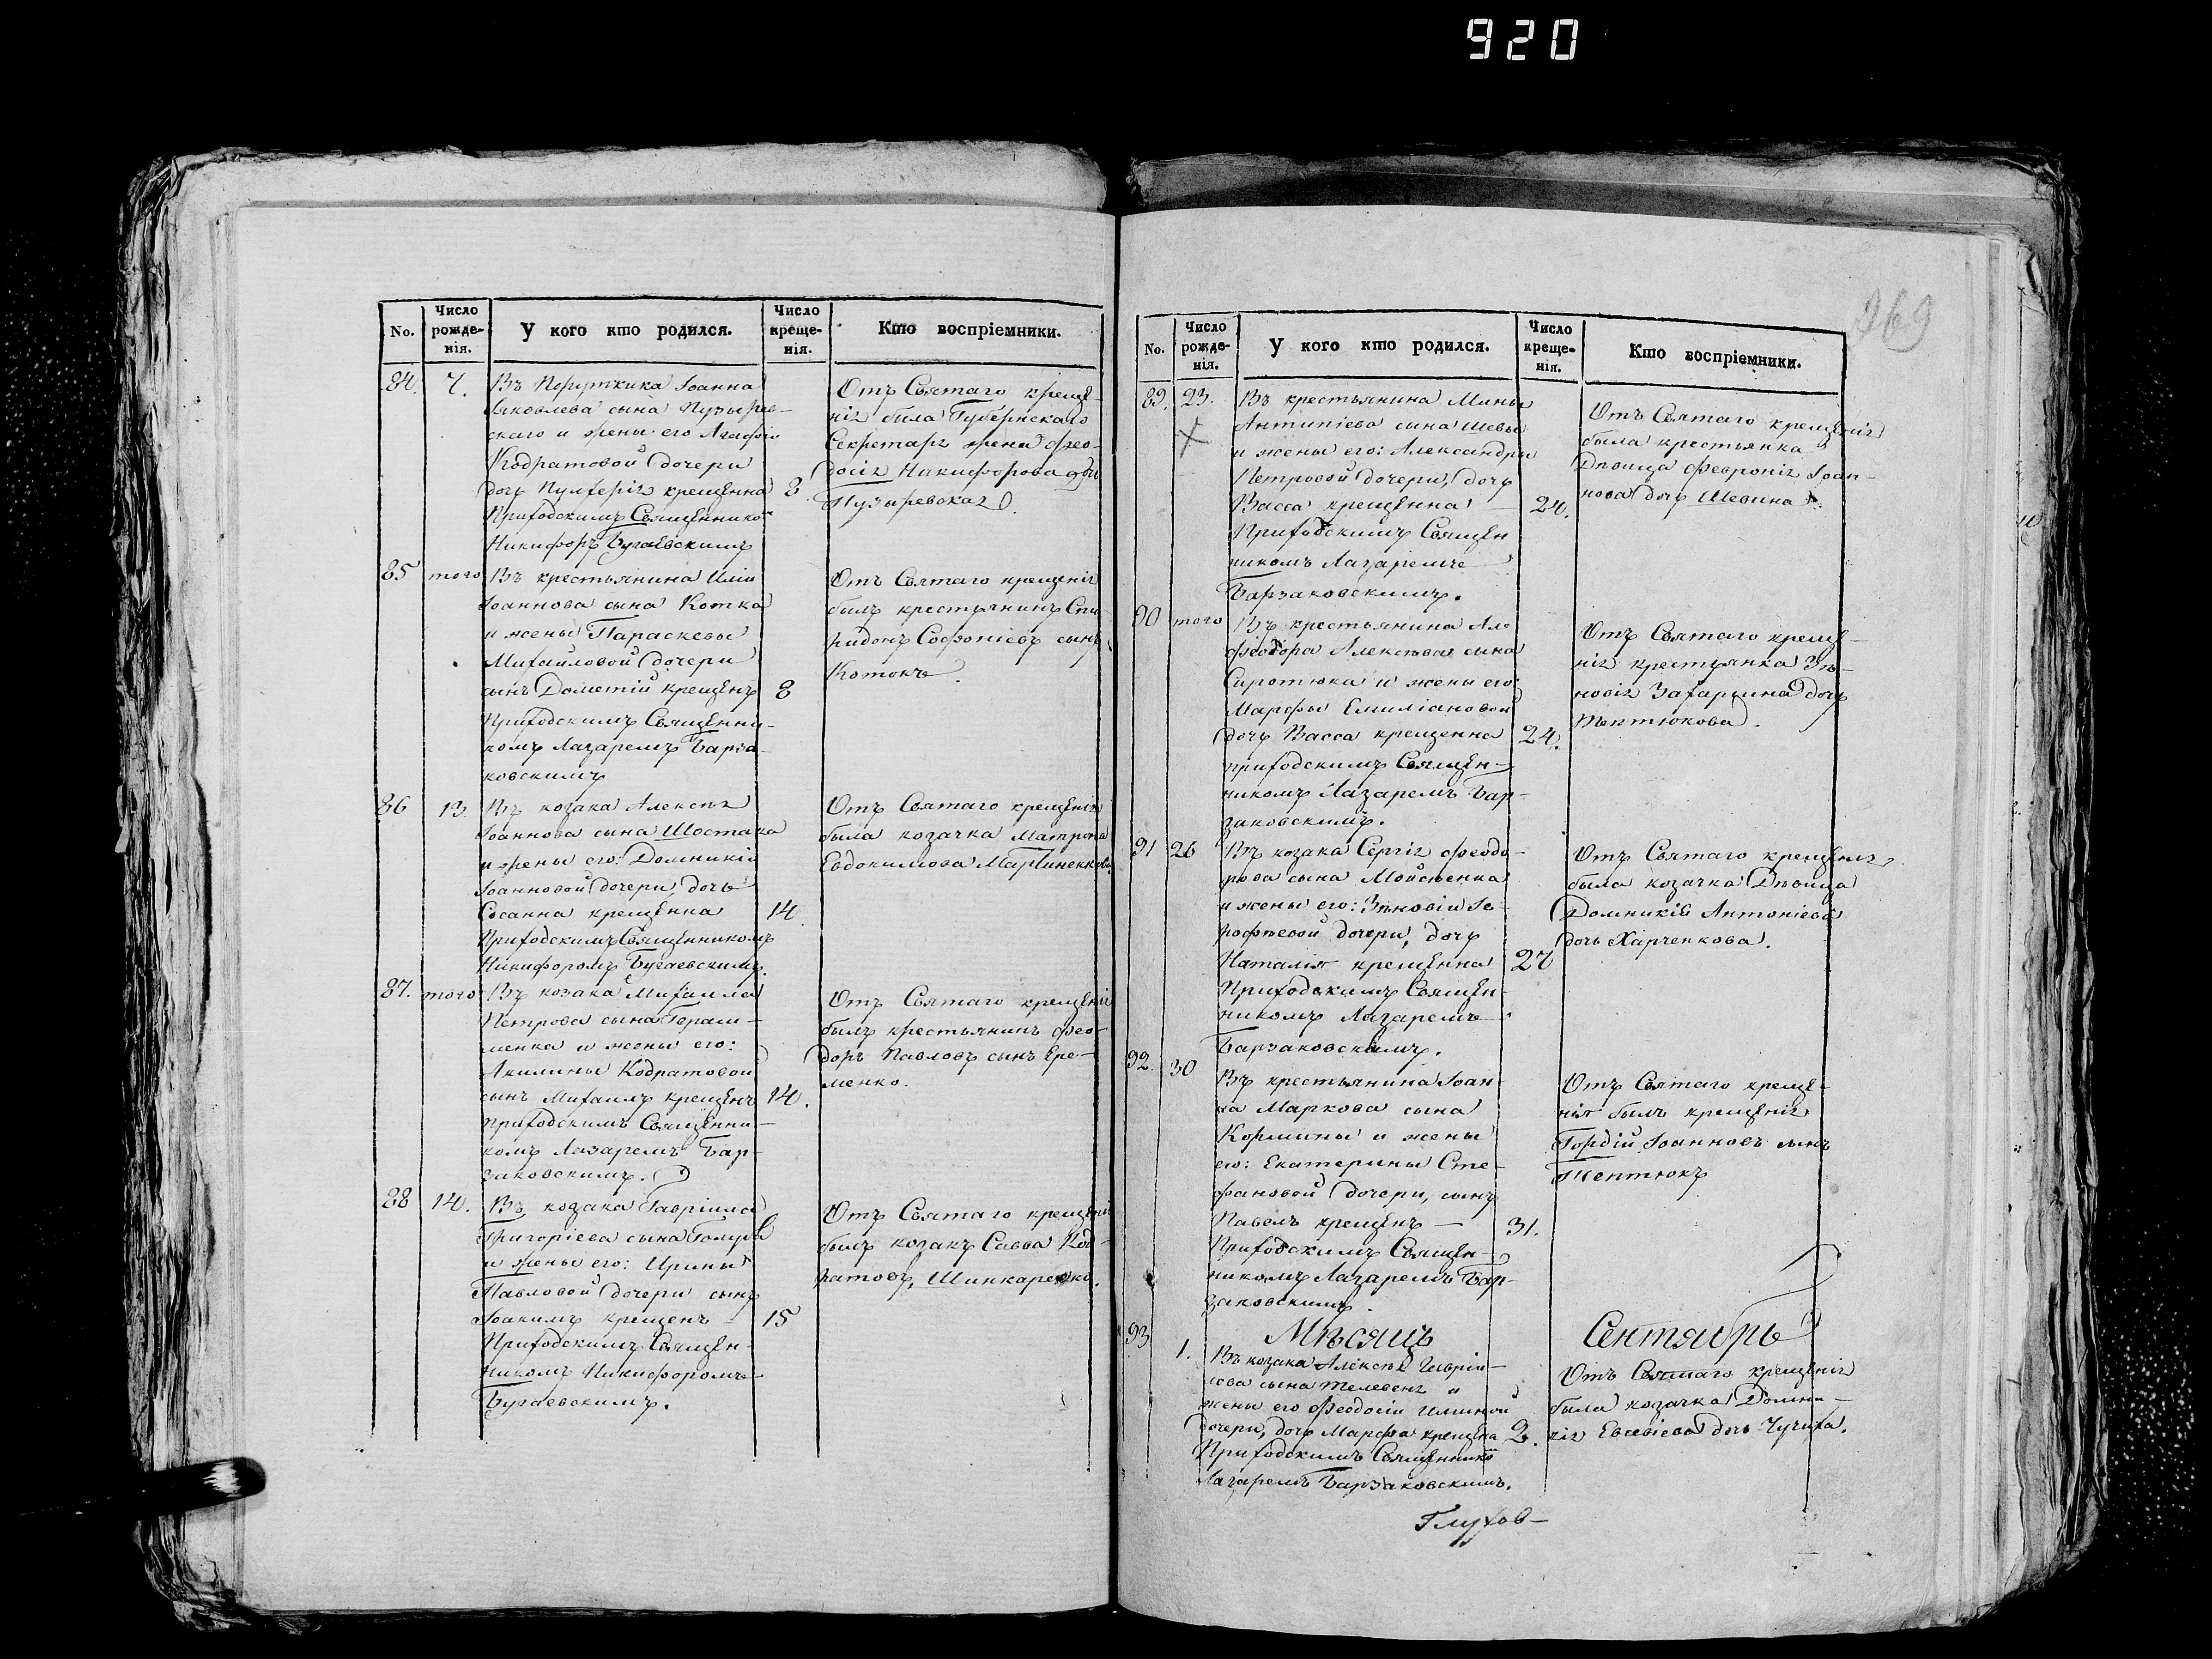 920
No.
Число рожде- нія.
У кого кто родился.
Число креще- нія.
Кто воспріемники.
84. 7. Въ Поручика Іоанна
Яковлева сына Пузырев-
скаго и жены его Агафіи
Кодратовой дочери
дочь Пулхерія крещенна 8.
Приходскимъ Священнико
Никифоръ Бугаевскимъ
Отъ Святаго креще-
нія была Губернскаго
Секретаря жена Фео-
досія Никифорова
Пузыревская
85 того Въ крестьянина Иліи
Іоаннова сына Котка
и жены Параскевы
Михайловой дочери
сынъ Дометій крещенъ 8
Приходскимъ Священни-
комъ Лазаремъ Барза-
ковскимъ
Отъ Святаго крещенія
былъ крестьянинъ Спи-
ридонъ Софроніевъ сынъ
Котокъ.
86 13 Въ козака Алексѣя
Іоаннова сына Шостака
и жены его: Домникіи
Іоанновой дочери, дочь
Сосанна крещенна 14.
Приходскимъ Священникомъ
Никифоромъ Бугаевскимъ.
Отъ Святаго крещенія
была козачка Матрона
Евдокимова
87. того Въ козака Михаила
Петрова сына Гераси-
менка и жены его:
Акилины Кодратовой
сынъ Михаилъ крещенъ 14.
приходскимъ Священни-
комъ Лазаремъ Бар-
заковскимъ.
Отъ Святаго крещенія
былъ крестьянинъ Фео-
доръ Павловъ сынъ Ере-
менко.
88 14. Въ козака Гавріила
Григоріева сына Голуба
и жены его: Ирины
Павловой дочери сынъ
Іоакимъ крещенъ – 15
Приходскимъ Священ-
никомъ Никифоромъ
Бугаевскимъ.
Отъ Святаго крещенія
былъ козакъ Савва Код-
ратовъ, Шинкаренко.
269
No.
Число рожде- нія.
У кого кто родился.
Число креще- нія.
Кто воспріемники.
89. 23. Въ крестьянина Мины
Антипіева сына Шевы
и жены его: Александры
Петровой дочери, дочь
Васса крещенна – 24.
Приходскимъ Священ
никомъ Лазаремъ
Барзаковскимъ.
Отъ Святаго крещенія
была крестьянка
Дѣвица Февронія Іоан-
нова дочь Шевина
90 того Въ крестьянина
Феодора Алексѣева сына
Сиротюка и жены его:
Марфы Емиліановой
дочь Васса крещенна 24.
приходскимъ Священ-
никомъ Лазаремъ Бар-
заковскимъ.
Отъ Святаго креще-
нія крестьянка Зѣ-
новія Захаріина дочь
Тептюкова.
91 26 Въ козака Сергія Феодо-
рова сына Мойсѣенка
и жены его: Зѣновіи Іе-
рофѣевой дочери, дочь
Наталія крещенна 27
Приходскимъ Священ-
никомъ Лазаремъ
Барзаковскимъ.
Отъ Святаго крещенія
была козачка Дѣвица
Домникія Антоніева
дочь Харченкова.
92. 30 Въ крестьянина Іоан-
на Маркова сына
Кормины и жены
его: Екатерины Сте-
фановой дочери, сынъ
Павелъ крещенъ – 31.
Приходскимъ Священ-
никомъ Лазаремъ Бар-
заковскимъ.
Отъ Святаго креще-
нія былъ крещенія
Гордій Іоанновъ сынъ
Тептюкъ
Мѣсяцъ Сентябрь
93 1. Въ козака Алексѣя Гавріи-
лова сына Телевея и
жены его Феодосіи Илиной
дочери, дочь Марфа крещена 2.
Приходскимъ Священнико
Лазаремъ Барзаковскимъ.
Отъ Святаго крещенія
была козачка Домни-
кія Евсевіева дочь Чучиха.
Глухов-